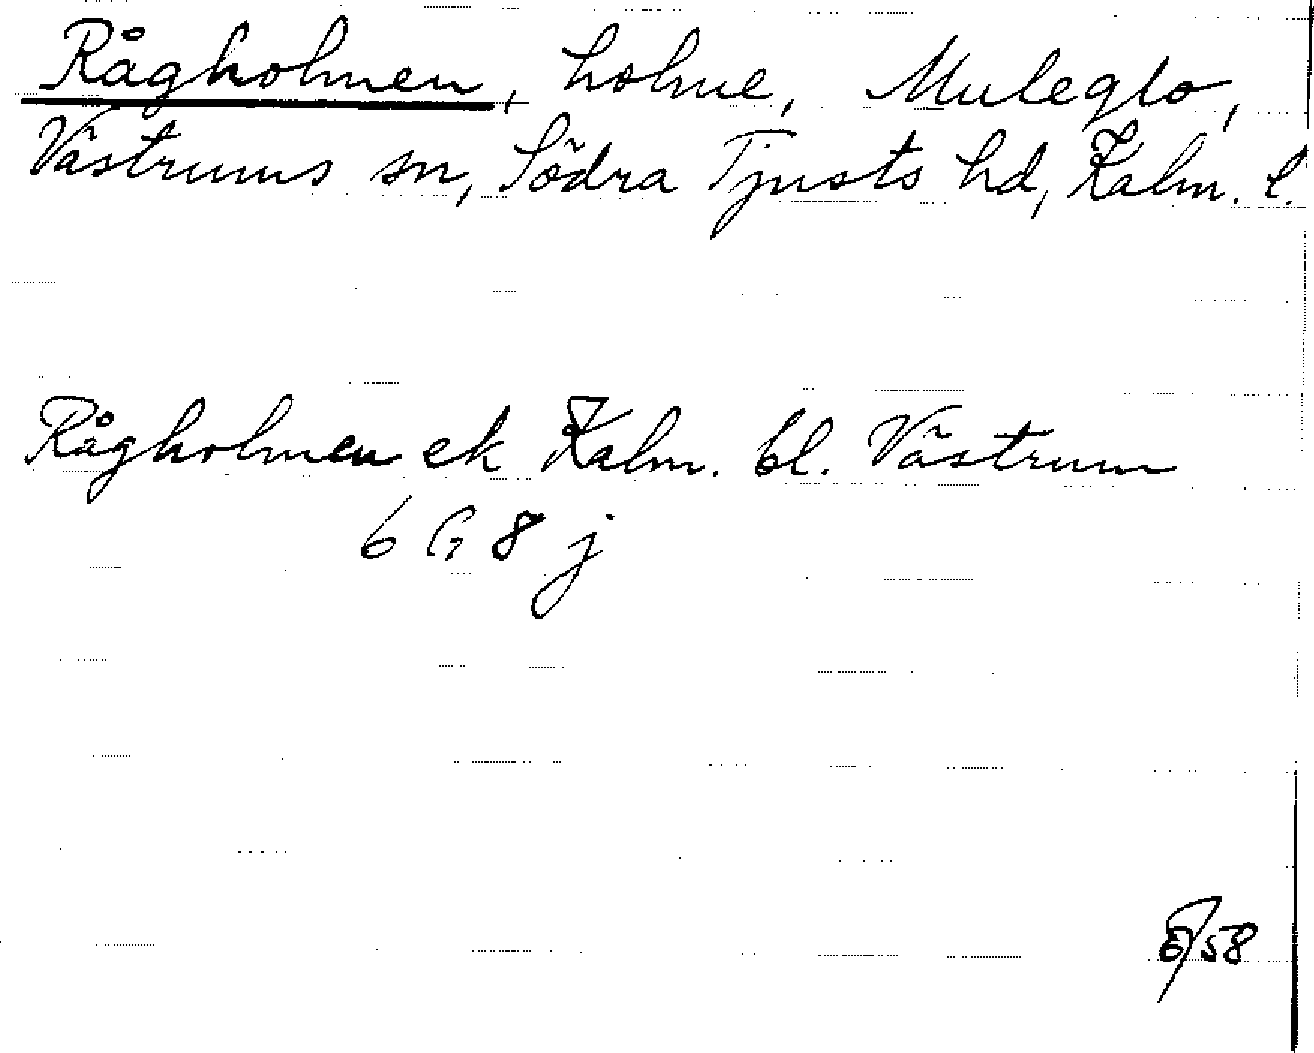 Rågholmen, holme, Muleglo,
Västrums sn, Södra Tjusts hd, Kalm. l.
Rågholmen ek Kalm. bl. Västrum
6 G 8 j
58